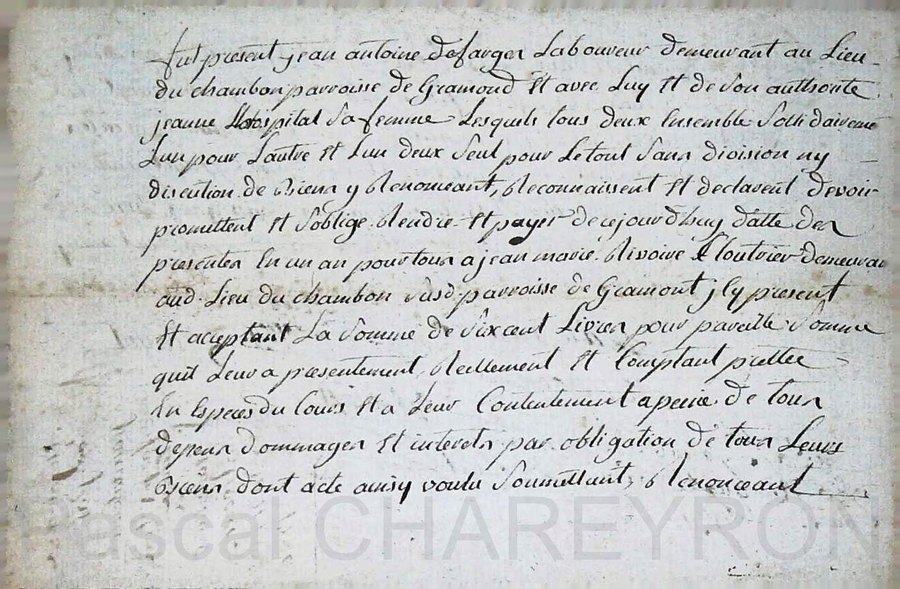 fut present jean antoine defarges Laboureur demeurant au Lieu
du chambon parroisse de Gramond Et avec Luy Et de Son authorité
jeanne Lhospital Sa femme Lesquels tous deux Ensemble Sollidairement
Lun pour Lautre Et Lun deux Seul pour Le tout Sans division ny
discution de Biens y Renonceant, Reconnaissent Et declarent devoir
promettent Et Soblige Rendre Et payer de cejourdhuy datte des
presentes En un an pour tous a jean marie Rivoire Cloutrier demeurant
aud. Lieu du chambon susd. parroisse de Gramont jcy present
Et acceptant La Somme de Six cent Livres pour pareille Somme
quil Leur a presentement, Réellement Et Comptant prettée
En Especes du Cours Et a Leur Contentement a peine de tous
depens dommages Et interets par obligation de tous Leurs
Biens dont acte ainsy voulu Soumettant, Renonceant
Pascal CHAREYRON